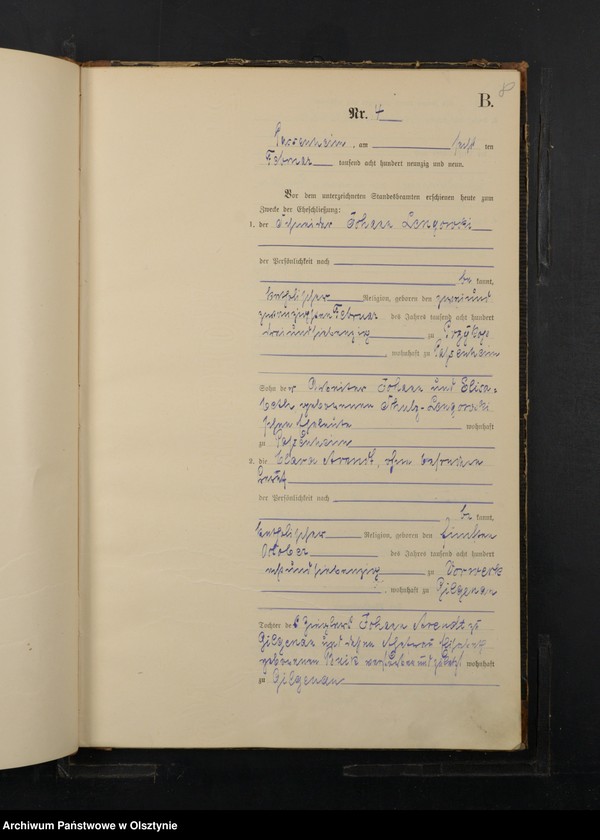 B.
Nr. 4
Passenheim, am sechsten
Februar tausend acht hundert neunzig und neun.
Vor dem unterzeichneten Standesbeamten erschienen heute zum
Zwecke der Eheschließung:
1. der Schneider Johann Lengowski
der Persönlichkeit nach
be kannt,
katholischer Religion, geboren den zweiund
zwanzigsten Februar des Jahres tausend acht hundert
dreiundsiebenzig zu Przykop
, wohnhaft zu Passenheim
Sohn der Arbeiter Johann und Elisa=
beth geborenen Schulz-Lengowski
schen Eheleute wohnhaft
zu Passenheim
2. die Clara Arendt, ohne besonderen
der Persönlichkeit nach
be kannt,
katholischer Religion, geboren den fünften
Oktober des Jahres tausend acht hundert
undsiebenzig zu Vorwerk
, wohnhaft zu Gilgenau
Tochter des Johann Arendt zu
Gilgenau und dessen Ehefrau
geborenen und zuletzt wohnhaft
zu Gilgenau
Archiwum Państwowe w Olsztynie